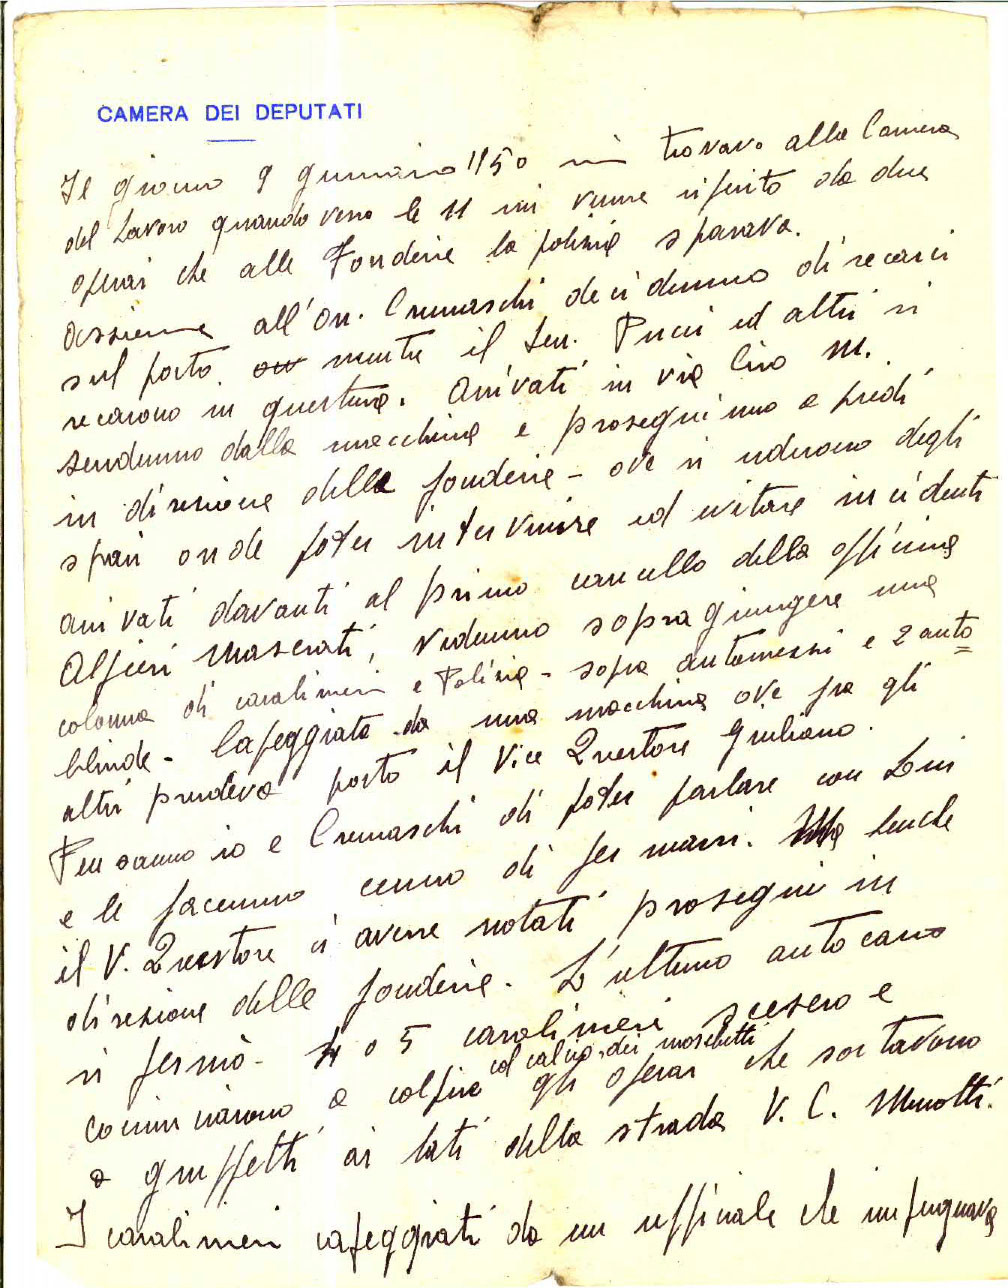 CAMERA DEI DEPUTATI
Il giorno 9 gennaio 1950 mi trovavo alla Camera
del Lavoro quando verso le 11 mi venne riferito da due
operai che alle Fonderie la polizia sparava.
Assieme all'On. Cremaschi decidemmo di recarci
sul posto, mentre il Sen. Pucci ed altri si
recarono in questura. Arrivati in via Ciro M.
scendemmo dalla macchina e proseguimmo a piedi
in direzione delle fonderie - ove si udivano degli
spari onde poter intervenire ed evitare incidenti
arrivati davanti al primo cancello della officina
Alfieri Maserati, vedemmo sopragiungere una
colonna di carabinieri e Polizia - sopra automezzi e 2 auto
blinde - Capeggiata da una macchina ove fra gli
altri prendeva posto il Vice Questore Giuliano.
Pensammo io e Cremaschi di poter parlare con Lui
e le facemmo cenno di fermarsi. benche
il V. Questore ci avesse notati proseguì in
direzione delle fonderie. L'ultimo autocarro
si fermò - 4 o 5 carabinieri scesero e
col calcio dei moschetti
cominciarono a colpire gli operai che sostavano
a gruppetti ai lati della strada V. C. Menotti.
I carabinieri capeggiati da un ufficiale che impugnava